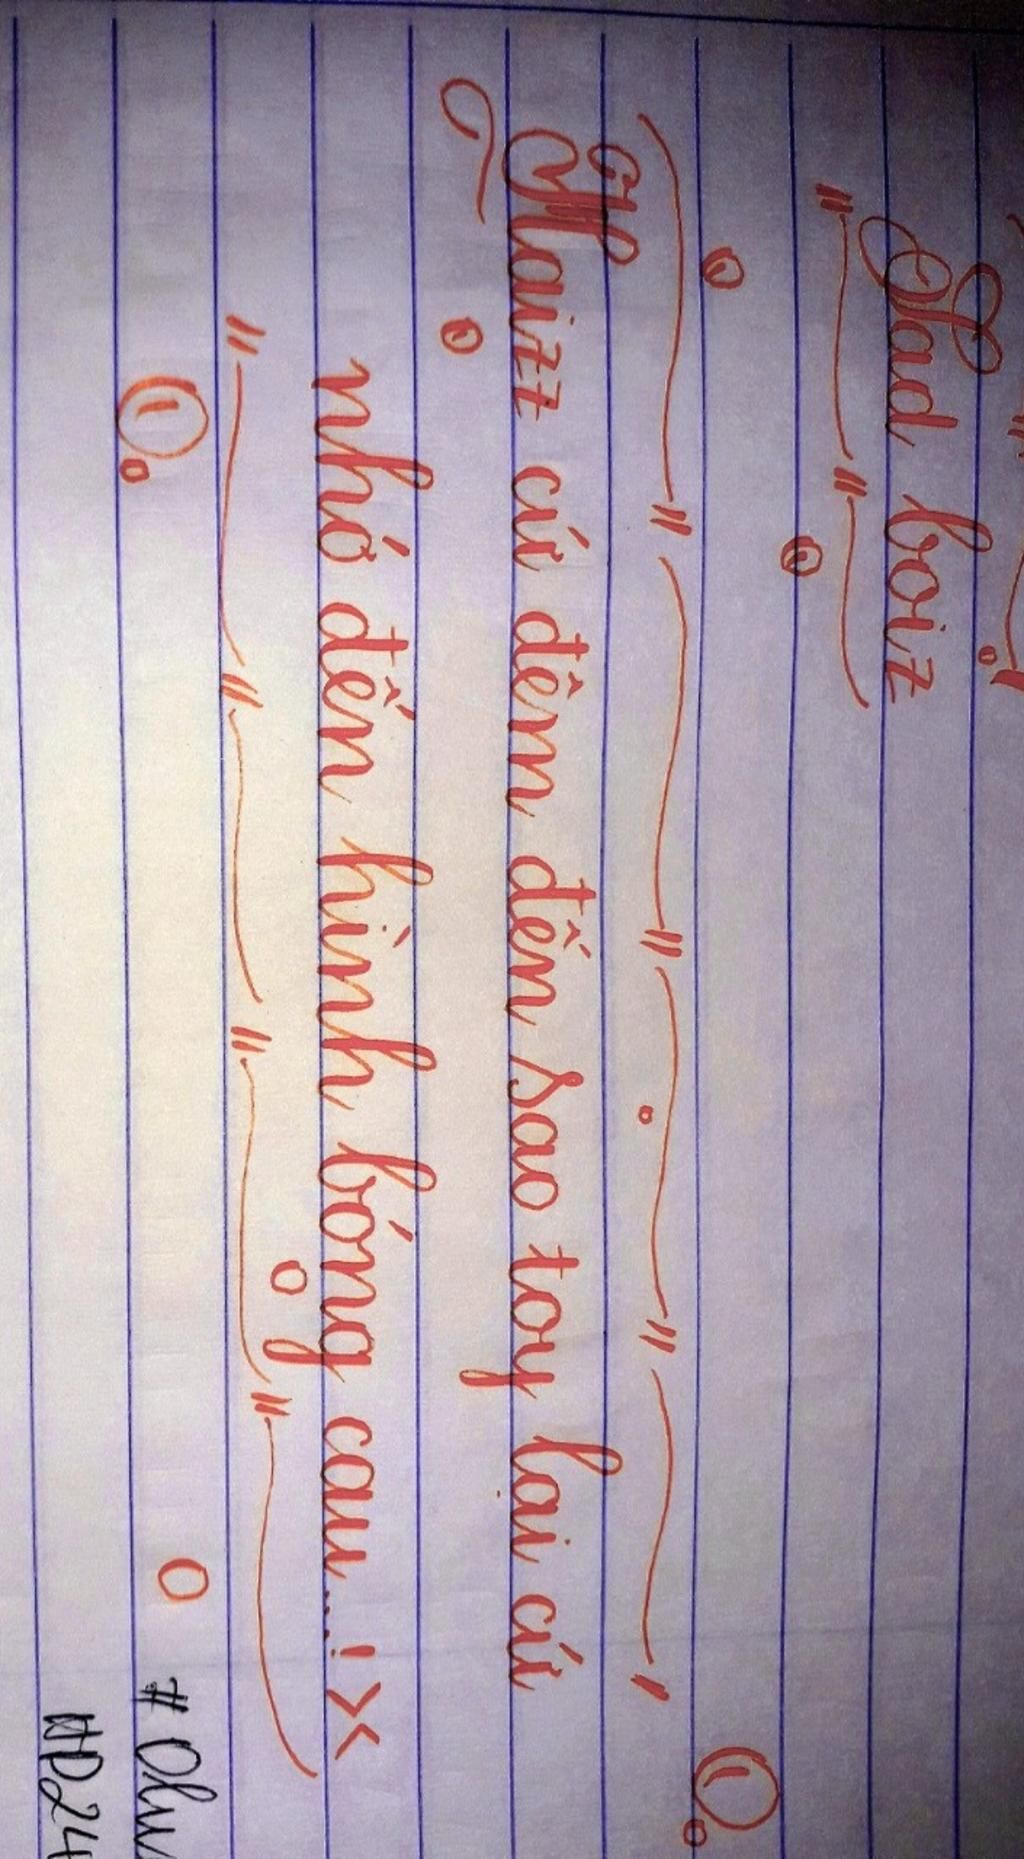 Sad boiz
Haizz cứ đêm đến sao toy lại cứ
nhớ đến hình bóng cau...! ><
# Olu
HD24